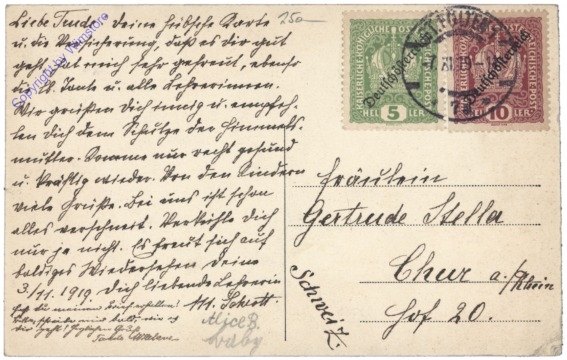 Liebe Trude! Deine hübsche Karte
u. die Versicherung, daß es dir gut
geht, hat mich sehr gefreut, ebenso
die Tante u. alle Lehrerinnen.
Wir grüßen dich innig u. empfeh-
len dich dem Schutze der Himmels-
mutter. Komme nur recht gesund
u. kräftig wieder. Von den Kindern
viele Grüße. Bei uns ist schon
alles verschneit. Verkühle dich
nur ja nicht. Es freut sich auf
baldiges Wiedersehen deine
3/11. 1919 Dich liebende Lehrerin
M.
250—
Alice B.
Waby
KAISERLICHE KÖNIGLICHE ÖSTERREICHISCHE POST
Deutschösterreich
5
HELLER
Deutschösterreich
10
ST. PÖLTEN
XI 19
Fräulein
Gertrude Stella
Chur a./Rhein
Hof 20.
Schweiz
Copyright by Wienstore